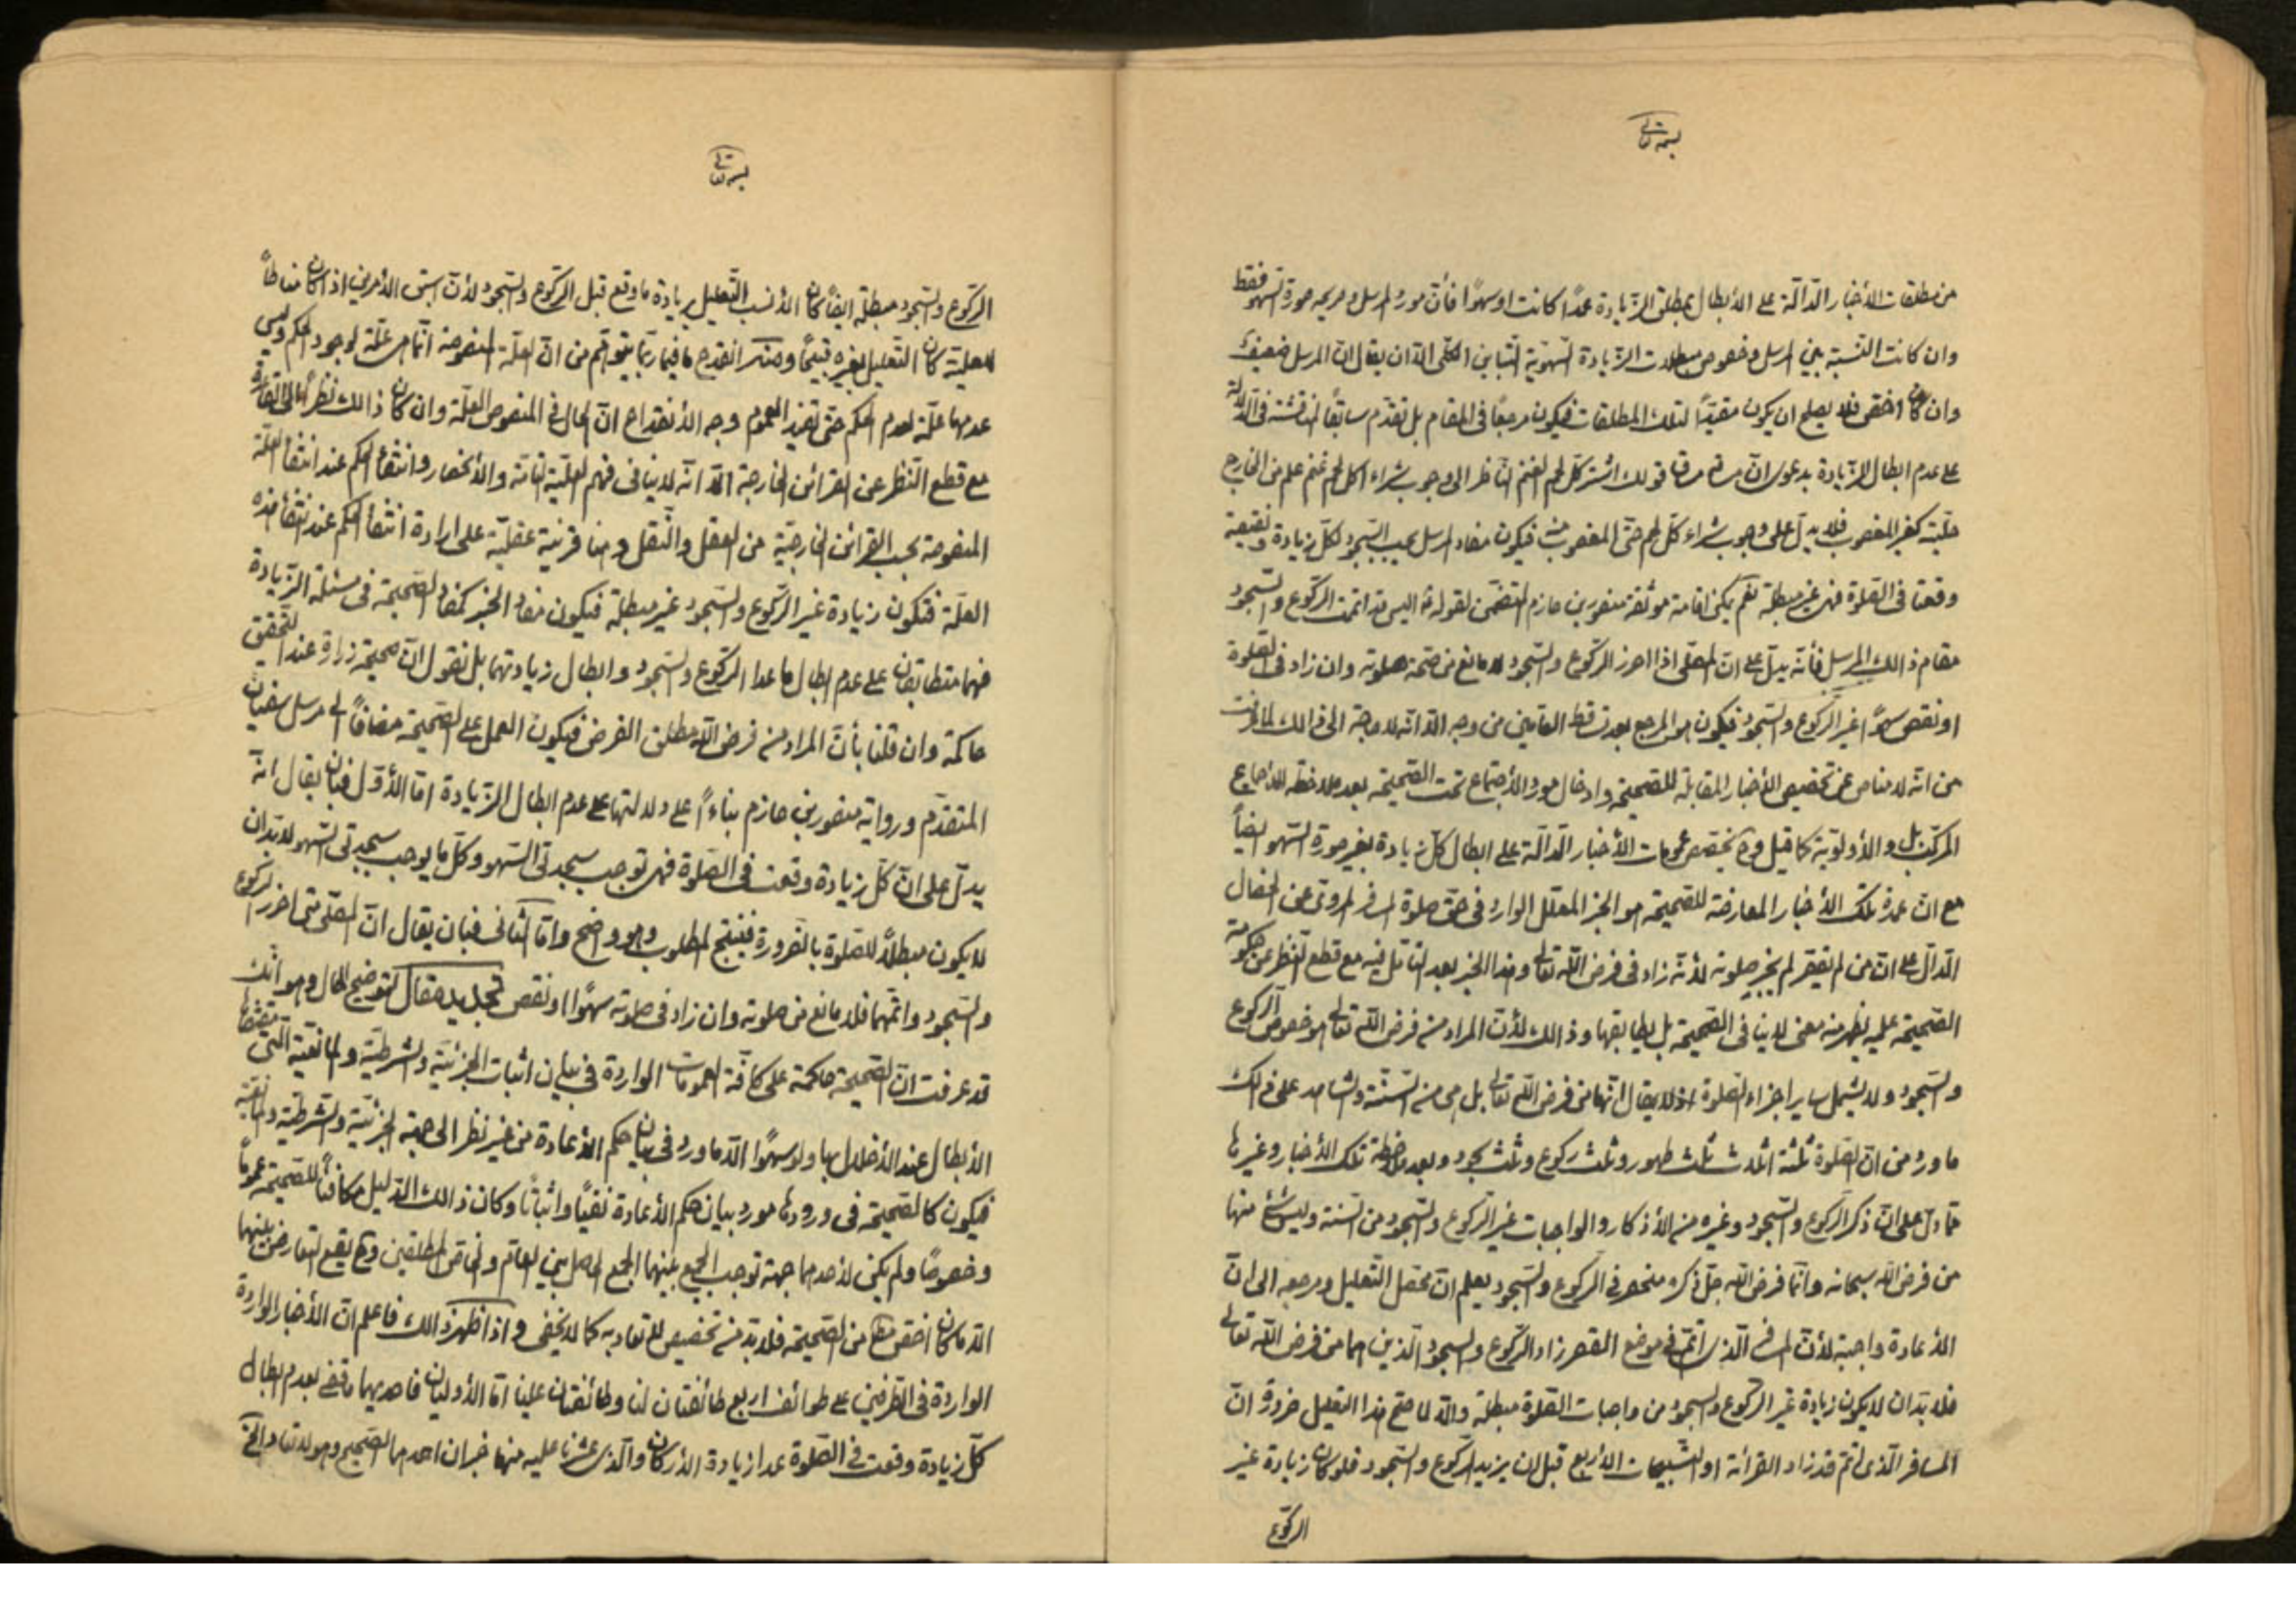 بسمه تعالى
من مطلقات الأخبار الدالّة على الأبطال بمطلق الزّيادة عمدًا كانت او سهوًا فأنّ مورد المرسل و صريحه صورة السّهو فقط
وان كانت النّسبة بين المرسل وخصوص مبطلات الزّيادة السّهويّة التّباين الكلّى الّا ان يقال انّ المرسل ضعيف
وان كان اخصّ فلا يصلح ان يكون مقيّدًا لتلك المطلقات فيكون مرجعًا فى المقام بل تقدّم سابقًا المناقشة فى الدّلالة
على عدم ابطال الزّيادة بدعوى انّ مساقه مساق قولك اشتر كلّ لحم الغنم النّاظر الى وجوب شراء اكل لحم غنم علم من الخارج
حلّيته كغير المغصوب فلا يدلّ على وجوب شراء كلّ لحم حتّى المغصوب منه فيكون مفاد المرسل يجب السّجود لكلّ زيادة ونقيصة
وقعتا فى الصّلوة فهى غير مبطلة نعم يمكن اقامة موثّقة منصور بن حازم المتضمّن لقوله ع اليس قد اتممت الرّكوع والسّجود
مقام ذالك المرسل فأنّه يدلّ على انّ المصلّى اذا احرز الرّكوع والسّجود لا مانع من صحّة صلوته وان زاد فى الصّلوة
او نقص سهوًا غير الرّكوع والسّجود فيكون هو المرجع بعد تساقط العامّين من وجه الّا انّه لا حاجة الى ذالك لما عرفت
من انّه لا مناص عن تخصيص الأخبار المقابلة للصّحيحة وادخال مورد الأجتماع تحت الصّحيحة بعد ملاحظة الأجماع
المركّب بل والأولويّة كما قيل وح يختصّ عمومات الأخبار الدالّة على ابطال كلّ زيادة بغير صورة السّهو ايضاً
مع انّ عمدة تلك الأخبار المعارضة للصّحيحة هو الخبر المعلّل الوارد فى حقّ صلوة المسافر المروىّ عن الخصال
الدّال على انّ من لم يقصّر لم يجز صلوته لأنّه زاد فى فرض اللّه تعالى وهذا الخبر بعد التأمّل فيه مع قطع النّظر عن حكومة
الصّحيحة عليه يظهر منه معنى لا ينافى الصّحيحة بل يطابقها وذالك لأنّ المراد من فرض اللّه تعالى هو خصوص الرّكوع
والسّجود ولا يشمل ساير اجزاء الصّلوة اذ لا يقال انّها من فرض اللّه تعالى بل هى من السّنّة والشّاهد على ذالك
ما ورد من انّ الصّلوة ثلثة اثلاث ثلث طهور وثلث ركوع وثلث سجود وبعد ملاحظة تلك الأخبار وغيرها
ممّا دلّ على انّ ذكر الرّكوع والسّجود وغيره من الأذكار والواجبات غير الرّكوع والسّجود من السّنة وليس شئ منها
من فرض اللّه سبحانه وانّما فرض اللّه جلّ ذكره منحصر فى الرّكوع والسّجود يعلم انّ محصّل التّعليل ومرجعه الى انّ
الأعادة واجبة لأنّ المسافر الّذى اتمّ فى موضع القصر زاد الرّكوع والسجود الّذين هما من فرض اللّه تعالى
فلا بدّ ان لا يكون زيادة غير الرّكوع والسّجود من واجبات الصّلوة مبطلة والّا لما صحّ هذا التّعليل ضرورة انّ
المسافر الّذى اتمّ قد زاد القرائة او التّسبيحات الأربع قبل ان يزيد الرّكوع والسّجود فلو كان زيادة غير
الركوع
بسمه تعالى
الرّكوع والسّجود مبطلة ايضاً كان الأنسب التّعليل بزيادة ما وقع قبل الرّكوع والسّجود لأنّ اسبق الأمرين اذا كان مناطاً
للعلّيّة كان التّعليل بغيره قبيحًا ومنه انقدح ما فيما ربّما يتوهّم من انّ العلّة المنصوصة انّما هى علّة لوجود الحكم وليس
عدمها علّة لعدم الحكم حتّى تفيد العموم وجه الأنقداح انّ الحال فى المنصوص العلّة وان كان ذالك نظرًا الى
مع قطع النّظر عن القرائن الخارجة الّا انّه لا ينافى فهم العلّيّة التامّة والأنحصار وانتفاء الحكم عند انتفاء العلّة
المنصوصة بحسب القرائن الخارجيّة من العقل والنّقل وهنا قرنية عقليّة على ارادة انتفاء الحكم عند انتفاء هذه
العلّة فتكون زيادة غير الرّكوع والسّجود غير مبطلة فيكون مفاد الخبر كمفاد الصّحيحة فى مسئلة الزّيادة
فهما متطابقان على عدم ابطال ما عدا الرّكوع والسّجود وابطال زيادتهما بل نقول انّ صحيحة زرارة عند التّحقيق
حاكمة وان قلنا بأنّ المراد من فرض اللّه مطلق الفرض فيكون العمل على الصّحيحة مضافًا الى مرسل سفيان
المتقدّم ورواية منصور بن حازم بناءً على دلالتها على عدم ابطال الزّيادة امّا الأوّل فبان يقال انّه
يدلّ على انّ كلّ زيادة وقعت فى الصّلوة فهى توجب سجدتى السّهو وكلّ ما يوجب سجدتى السّهو لا بدّ ان
لا يكون مبطلاً للصّلوة بالضّرورة فينتج المطلوب وهو واضح وامّا الثّانى فبان يقال انّ المصلّى متى احرز الرّكوع
والسّجود واتمّهما فلا مانع من صلوته وان زاد فى صلوته سهوًا او نقص تجديد مقال لتوضيح الحال وهو انّك
قد عرفت انّ الصّحيحة حاكمة على كافّة العمومات الواردة فى بيان اثبات الجزئيّة والشّرطيّة والمانعيّة الّتى مقتضاها
الأبطال عند الأخلال بها ولو سهوًا الّا ما ورد فى بيان حكم الأعادة من غير نظر الى جهة الجزئيّة والشّرطيّة والمانعيّة
فيكون كالصّحيحة فى ورودها مورد بيان حكم الأعادة نفيًا واثباتًا وكان ذالك الدّليل مكافئًا للصّحيحة عمومًا
وخصوصًا ولم يكن لأحدهما جهة توجب الجمع بينهما الجمع الحاصل بين العام والخاصّ المطلقين وح يقع التّعارض بينهما
الّا ما كان اخصّ مطلقا من الصّحيحة فلا بدّ من تخصيص للقاعدة به كما لا يخفى و اذا ظهر ذالك فاعلم انّ الأخبار الواردة
الواردة فى الطّرفين على طوائف اربع طائفتان لنا وطائفتان علينا امّا الأوليان فاحديهما ما قضى بعدم ابطال
كلّ زيادة وقعت فى الصّلوة عدا زيادة الأركان والّذى عثرنا عليه منها خبران احدهما الصّحيح وهو لا تعاد الخ